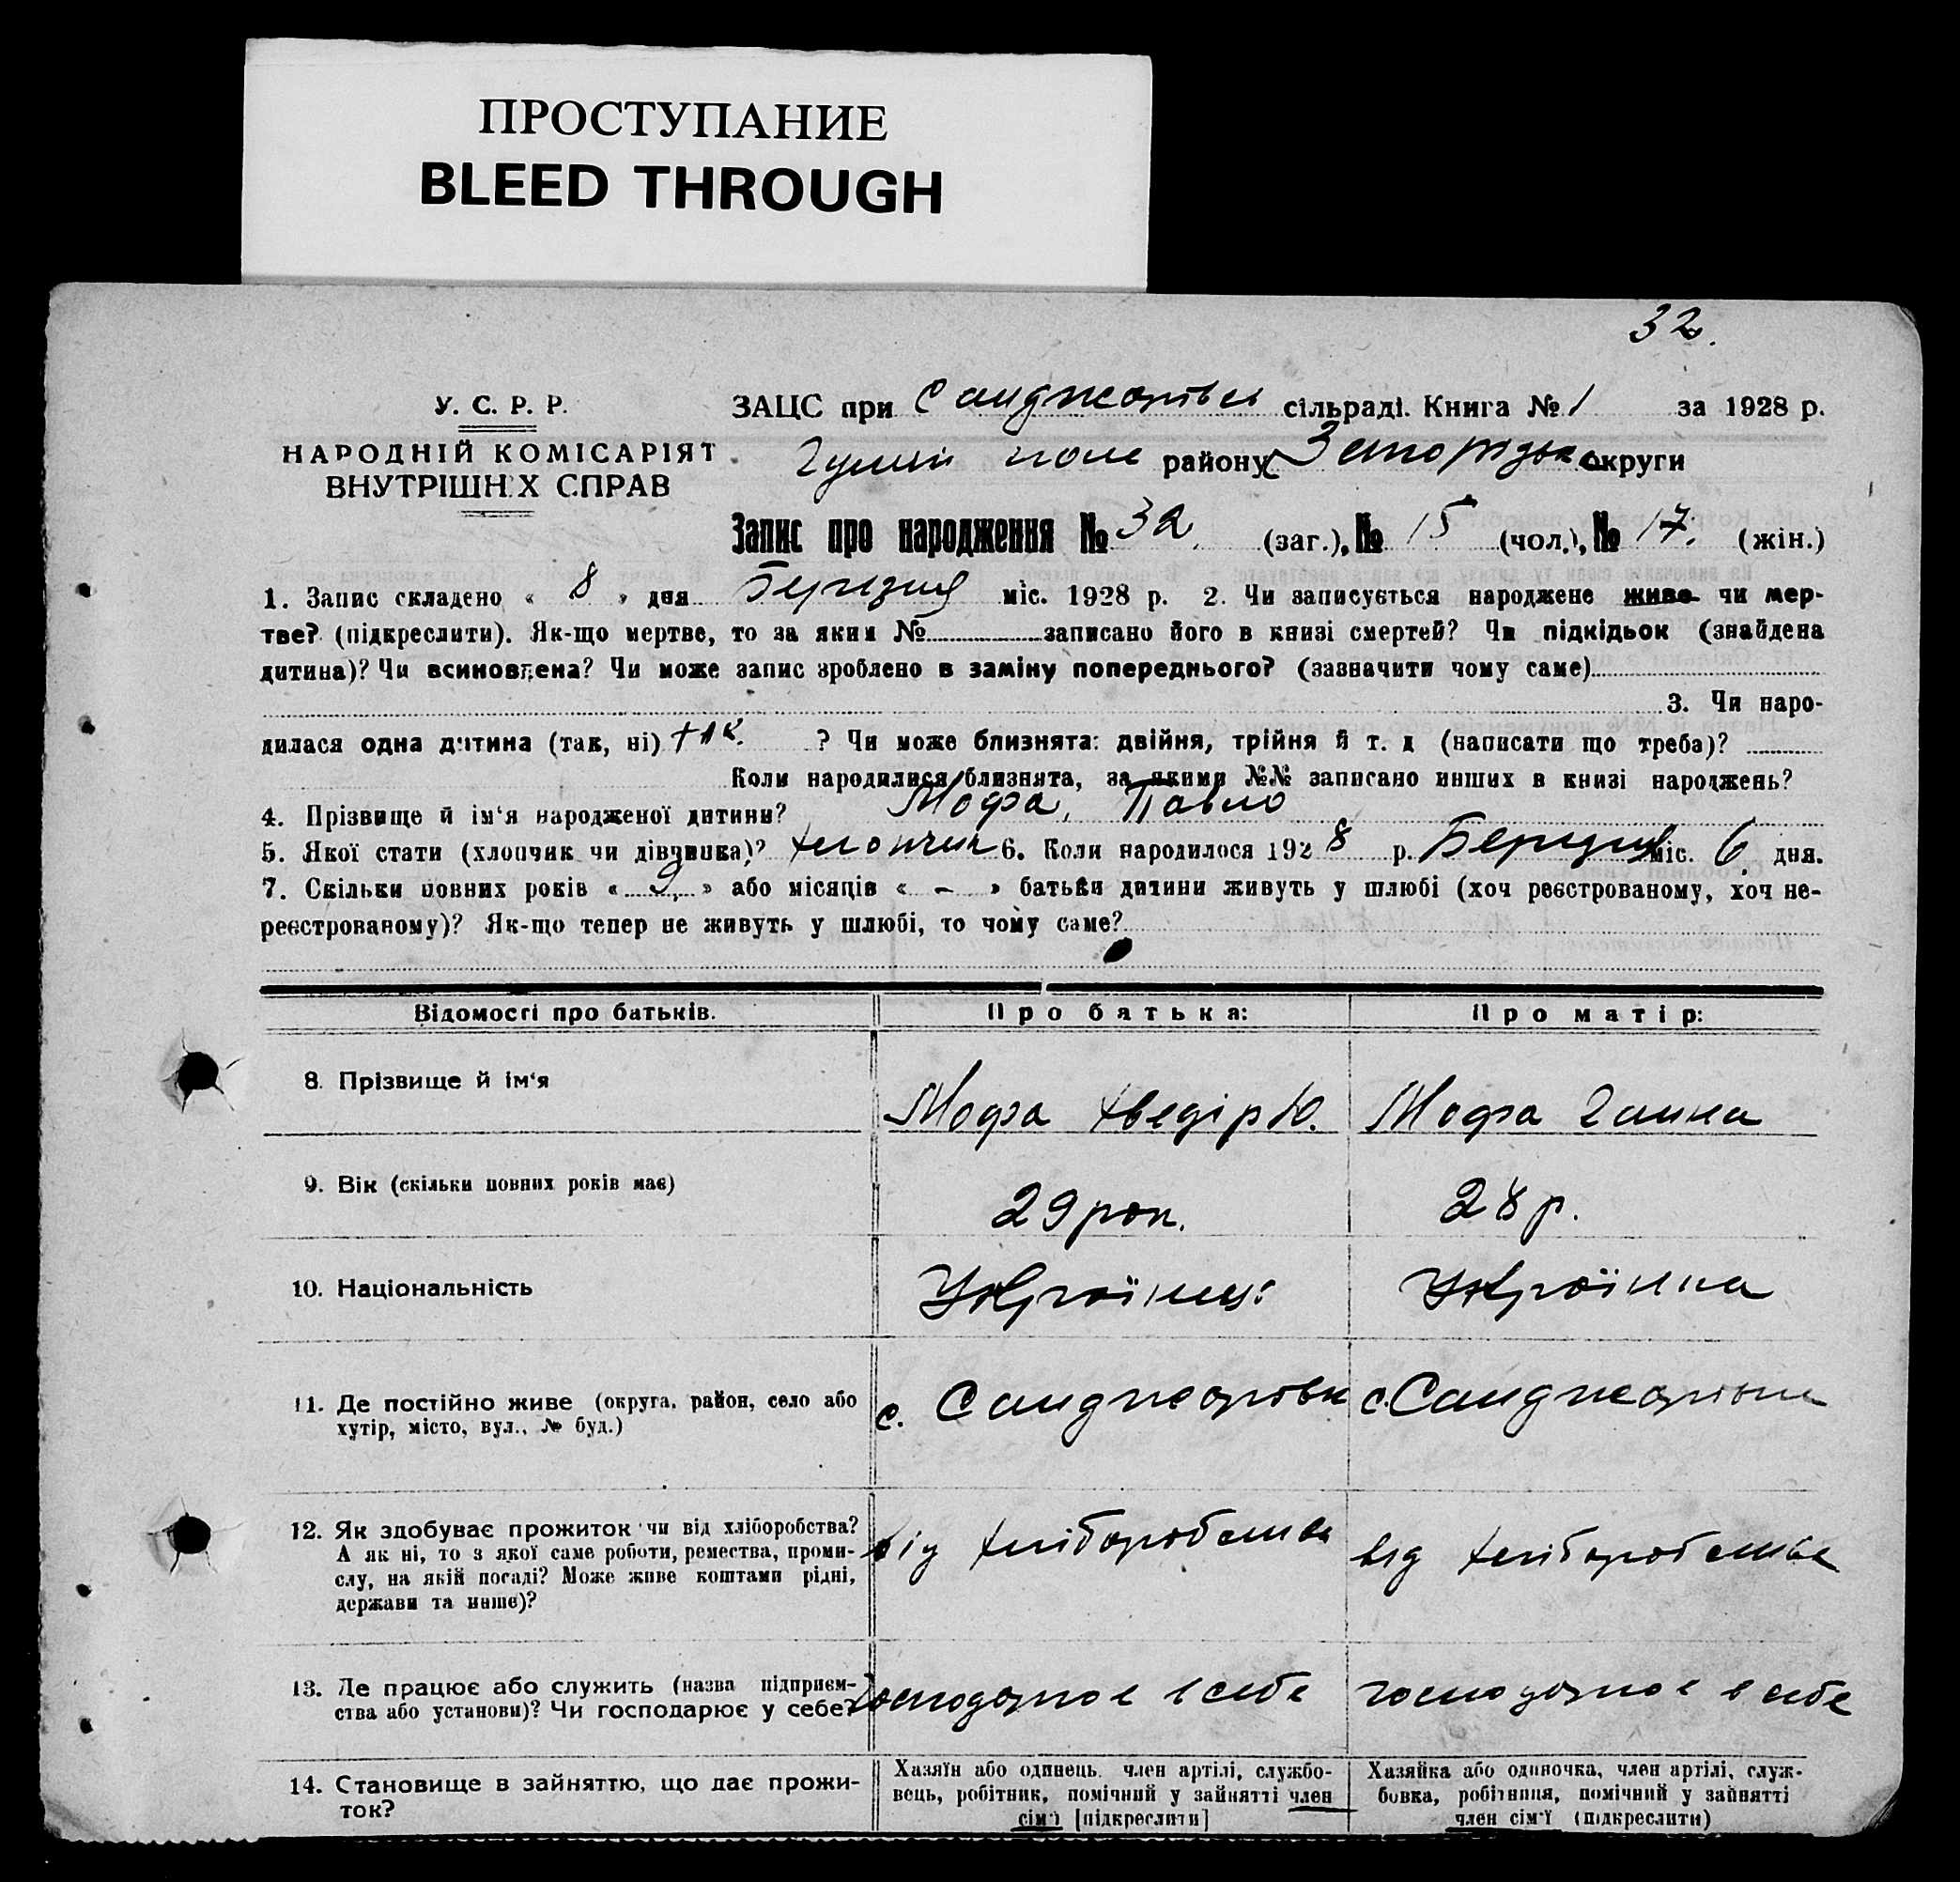 ПРОСТУПАНИЕ
BLEED THROUGH
32.
У. С. Р. Р.
НАРОДНІЙ КОМІСАРІЯТ
ВНУТРІШНІХ СПРАВ
ЗАЦС при Санджарівськ сільраді. Книга № 1 за 1928 р.
Гуляй поле району Запорізької округи
Запис про народження № 32. (заг.), № 15 (чол.), № 17. (жін.)
1. Запис складено « 8 » дня Березня міс. 1928 р. 2. Чи записується народжене живе чи мер-
тве? (підкреслити). Як-що мертве, то за яким № записано його в книзі смертей? Чи підкідьок (знайдена
дитина)? Чи всиновлена? Чи може запис зроблено в заміну попереднього? (зазначити чому саме)
3. Чи наро-
дилася одна дитина (так, ні) так. ? Чи може близнята: двійня, трійня й т. д (написати що треба)?
Коли народилися близнята, за якими №№ записано инших в книзі народжень?
4. Прізвище й ім'я народженої дитини? Мофа, Павло
5. Якої стати (хлопчик чи дівчинка)? хлопчик 6. Коли народилося 1928 р. Березня міс. 6 дня.
7. Скільки повних років « 9, » або місяців « - » батьки дитини живуть у шлюбі (хоч реєстрованому, хоч не-
реєстрованому)? Як-що тепер не живуть у шлюбі, то чому саме?
Відомості про батьків. Про батька: Про матір:
8. Прізвище й ім'я Мофа Хведір Ю. Мофа Ганна
9. Вік (скільки повних років має) 29 рок. 28 р.
10. Національність Українець Українка
11. Де постійно живе (округа, район, село або
хутір, місто, вул., № буд.)
с. Санджарівка с. Санджарівка
12. Як здобуває прожиток чи від хліборобства?
А як ні, то з якої саме роботи, ремества, проми-
слу, на якій посаді? Може живе коштами рідні,
держави та инше)?
від хліборобства від хліборобства
13. Де працює або служить (назва підприєм-
ства або установи)? Чи господарює у себе?
господарює в себе господарює в себе
14. Становище в зайняттю, що дає прожи-
ток?
Хазяїн або одинець, член артілі, службо-
вець, робітник, помічний у зайнятті член
сім'ї [підкреслити]
Хазяйка або одиночка, член артілі, служ-
бовка, робітниця, помічний у зайнятті
член сім'ї (підкреслити)